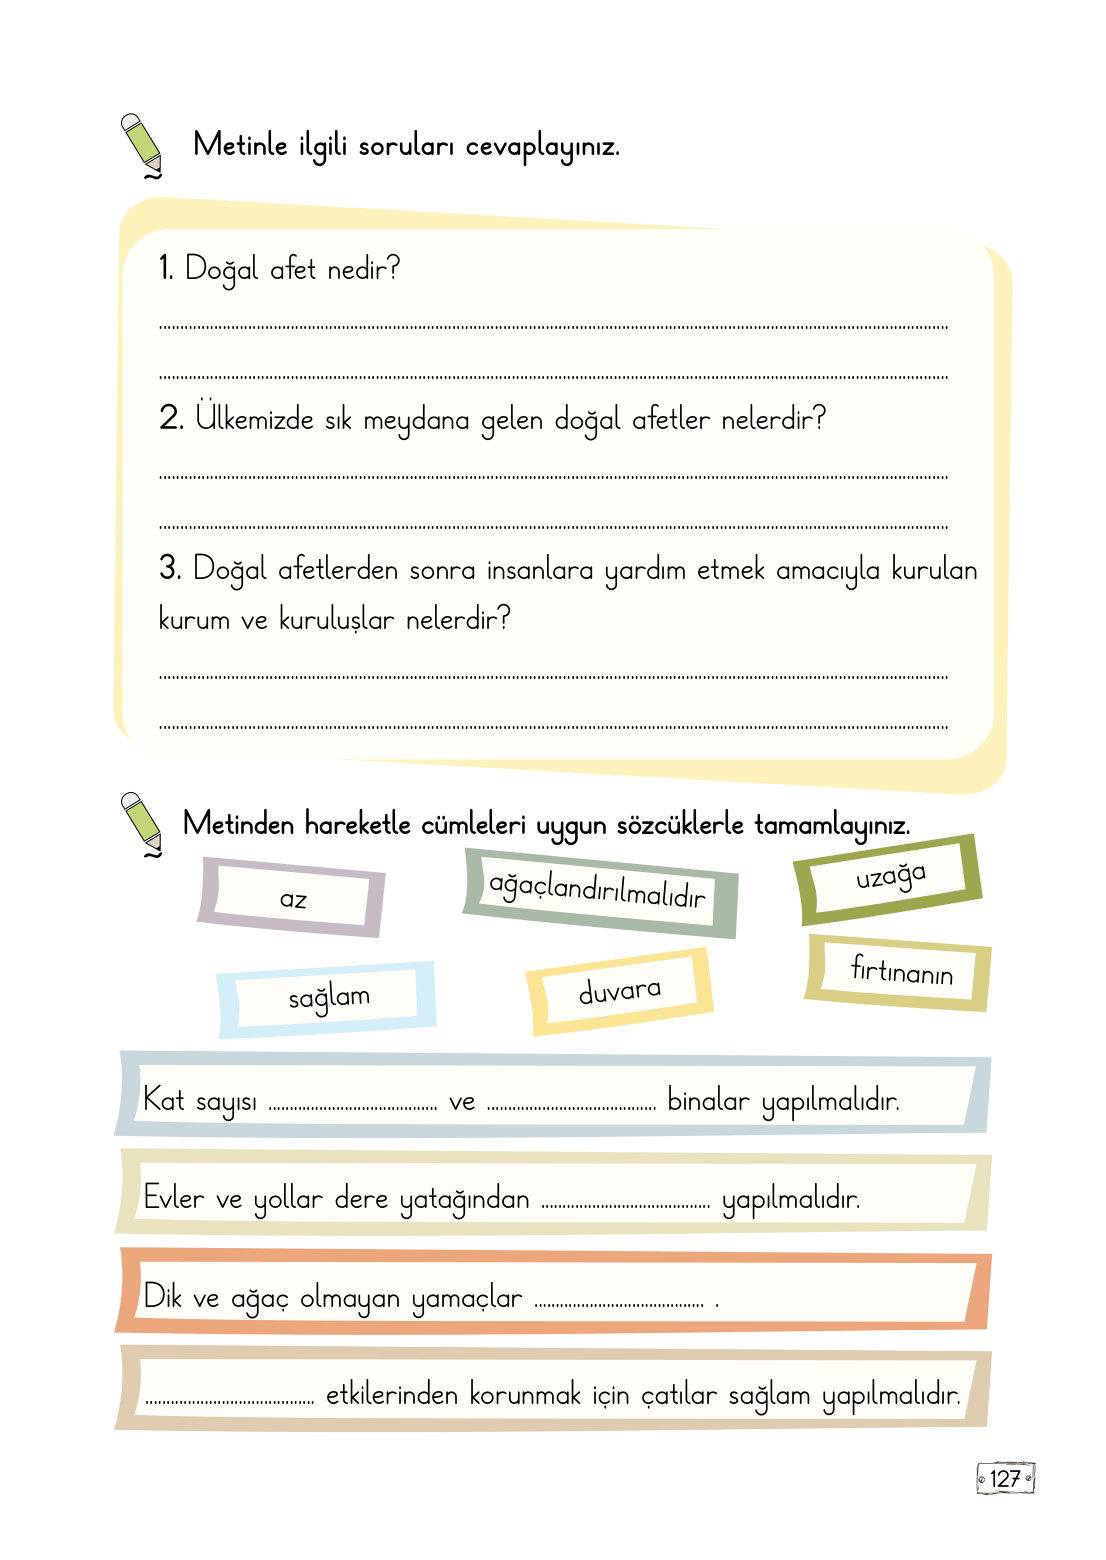 Metinle ilgili soruları cevaplayınız.
1. Doğal afet nedir?
2. Ülkemizde sık meydana gelen doğal afetler nelerdir?
3. Doğal afetlerden sonra insanlara yardım etmek amacıyla kurulan
kurum ve kuruluşlar nelerdir?
Metinden hareketle cümleleri uygun sözcüklerle tamamlayınız.
az
ağaçlandırılmalıdır
uzağa
sağlam
duvara
fırtınanın
Kat sayısı ........................................ ve ........................................ binalar yapılmalıdır.
Evler ve yollar dere yatağından ........................................ yapılmalıdır.
Dik ve ağaç olmayan yamaçlar ........................................ .
........................................ etkilerinden korunmak için çatılar sağlam yapılmalıdır.
127